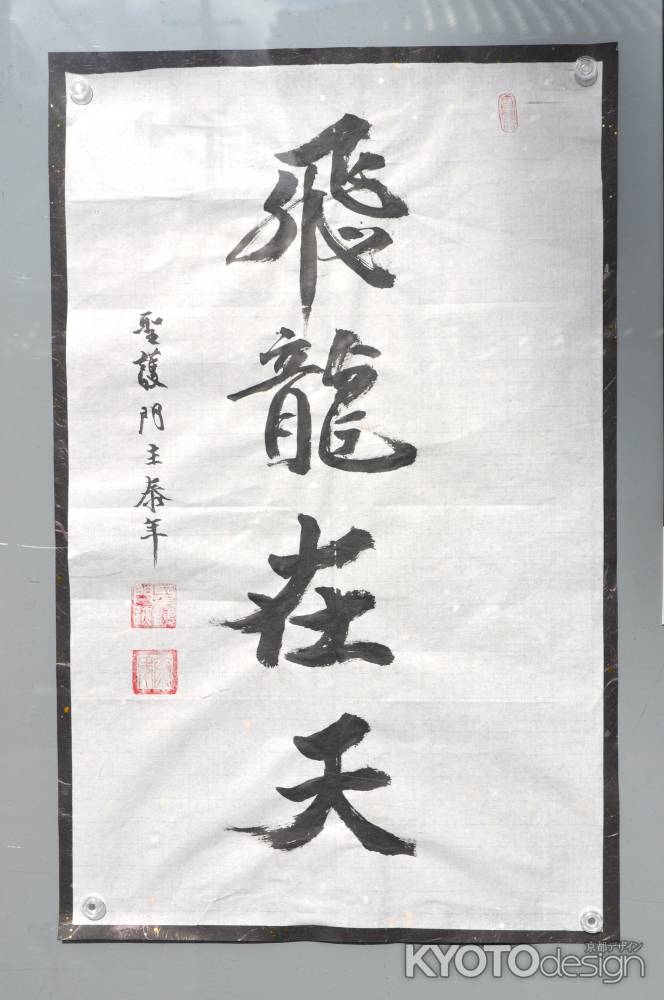 飛龍在天
聖護門主泰年
京都デザイン
KYOTOdesign